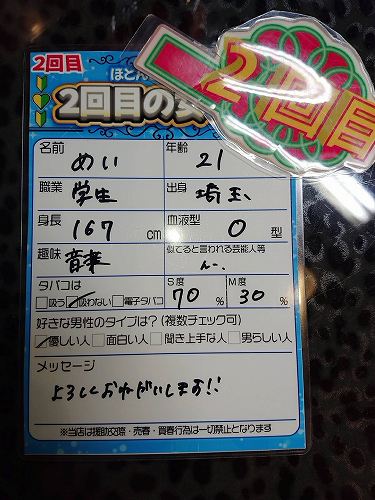 2回目
2回目
ほとん
2回目の
名前 めい 年齢 21
職業 学生 出身 埼玉
身長 167 cm 血液型 O 型
趣味 音楽 似てると言われる芸能人等 んー、
タバコは S度 M度
吸う 吸わない 電子タバコ 70 % 30 %
好きな男性のタイプは?(複数チェック可)
優しい人 面白い人 聞き上手な人 男らしい人
メッセージ
よろしくおねがいします!!
※当店は援助交際・売春・買春行為は一切禁止となります